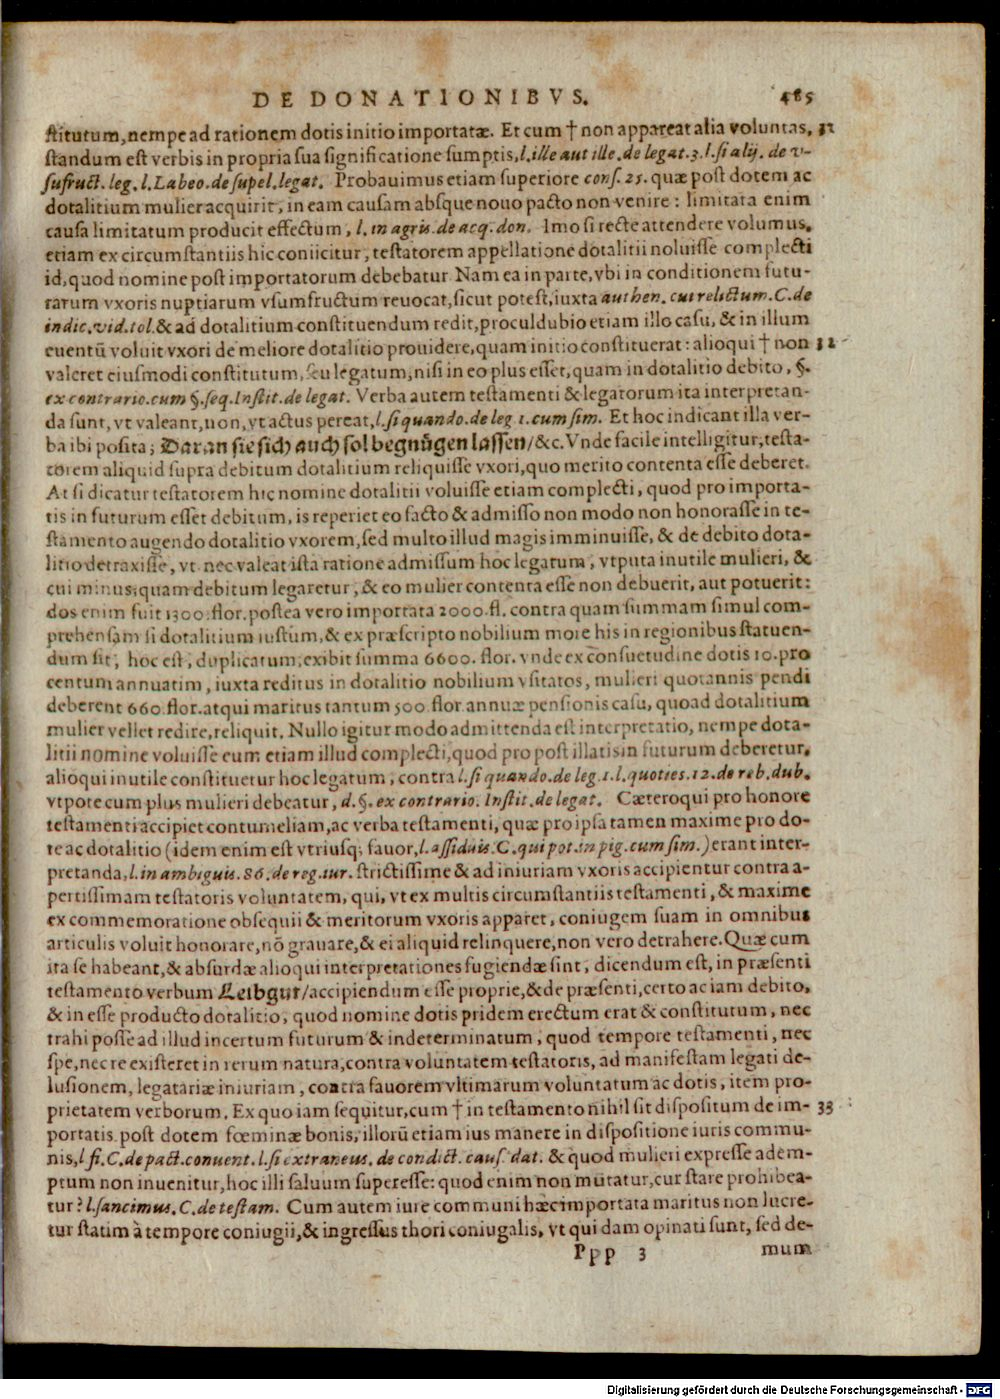 DE DONATIONIBVS. 485
stitutum, nempe ad rationem dotis initio importatæ. Et cum † non appareat alia voluntas, 31
standum est verbis in propria sua significatione sumptis, l. ille aut ille. de legat. 3. l. si alij. de v-
sufruct. leg. l. Labeo. de supel. legat. Probauimus etiam superiore cons. 25. quæ post dotem ac
dotalitium mulier acquirit, in eam causam absque nouo pacto non venire: limitata enim
causa limitatum producit effectum, l. in agris. de acq. don. Imo si recte attendere volumus,
etiam ex circumstantiis hic coniicitur, testatorem appellatione dotalitii noluisse complecti
id, quod nomine post importatorum debebatur. Nam ea in parte, vbi in conditionem futu-
rarum vxoris nuptiarum vsumfructum reuocat, sicut potest, iuxta authen. cui relictum. C. de
indic. vid. tol. & ad dotalitium constituendum redit, proculdubio etiam illo casu, & in illum
euentū voluit vxori de meliore dotalitio prouidere, quam initio constituerat: alioqui † non 32
valeret eiusmodi constitutum, seu legatum, nisi in eo plus esset, quam in dotalitio debito, §.
ex contrario. cum §. seq. Instit. de legat. Verba autem testamenti & legatorum ita interpretan-
da sunt, vt valeant, non, vt actus pereat, l. si quando. de leg. 1. cum sim. Et hoc indicant illa ver-
ba ibi posita; Daran sie sich auch sol begnügen lassen/ &c. Vnde facile intelligitur, testa-
torem aliquid supra debitum dotalitium reliquisse vxori, quo merito contenta esse deberet.
At si dicatur testatorem hic nomine dotalitii voluisse etiam complecti, quod pro importa-
tis in futurum esset debitum, is reperiet eo facto & admisso non modo non honorasse in te-
stamento augendo dotalitio vxorem, sed multo illud magis imminuisse, & de debito dota-
litio detraxisse, vt nec valeat ista ratione admissum hoc legatum, vtputa inutile mulieri, &
cui minus, quam debitum legaretur, & eo mulier contenta esse non debuerit, aut potuerit:
dos enim fuit 1300. flor. postea vero importata 2000. fl. contra quam summam simul com-
prehensam si dotalitium iustum, & ex præscripto nobilium more his in regionibus statuen-
dum sit, hoc est, duplicatum, exibit summa 6600. flor. vnde ex consuetudine dotis 10. pro
centum annuatim, iuxta reditus in dotalitio nobilium vsitatos, mulieri quotannis pendi
deberent 660. flor. atqui maritus tantum 500. flor. annuæ pensionis casu, quo ad dotalitium
mulier vellet redire, reliquit. Nullo igitur modo admittenda est interpretatio, nempe dota-
litii nomine voluisse eum etiam illud complecti, quod pro post illatis in futurum deberetur,
alioqui inutile constituetur hoc legatum, contra l. si quando. de leg. 1. l. quoties. 12. de reb. dub.
vtpote cum plus mulieri debeatur, d. §. ex contrario. Instit. de legat. Cæteroqui pro honore
testamenti accipiet contumeliam, ac verba testamenti, quæ pro ipsa tamen maxime pro do-
te ac dotalitio (idem enim est vtriusq; fauor, l. assiduis. C. qui pot. in pig. cum sim.) erant inter-
pretanda, l. in ambiguis. 86. de reg. iur. strictissime & ad iniuriam vxoris accipientur contra a-
pertissimam testatoris voluntatem, qui, vt ex multis circumstantiis testamenti, & maxime
ex commemoratione obsequii & meritorum vxoris apparet, coniugem suam in omnibus
articulis voluit honorare, nō grauare, & ei aliquid relinquere, non vero detrahere. Quæ cum
ita se habeant, & absurdæ alioqui interpretationes fugiendæ sint, dicendum est, in præsenti
testamento verbum Leibgut/ accipiendum esse proprie, & de præsenti, certo ac iam debito,
& in esse producto dotalitio, quod nomine dotis pridem erectum erat & constitutum, nec
trahi posse ad illud incertum futurum & indeterminatum, quod tempore testamenti, nec
spe, nec re existeret in rerum natura, contra voluntatem testatoris, ad manifestam legati de-
lusionem, legatariæ iniuriam, contra fauorem vltimarum voluntatum ac dotis, item pro-
prietatem verborum. Ex quo iam sequitur, cum † in testamento nihil sit dispositum de im- 33
portatis post dotem fœminæ bonis, illorū etiam ius manere in dispositione iuris commu-
nis, l. fi. C. de pact. conuent. l. si extraneus. de condict. caus. dat. & quod mulieri expresse adem-
ptum non inuenitur, hoc illi saluum superesse: quod enim non mutatur, cur stare prohibea-
tur? l. sancimus. C. de testam. Cum autem iure communi hæc importata maritus non lucre-
tur statim à tempore coniugii, & ingressus thori coniugalis, vt quidam opinati sunt, sed de-
Ppp 3 mum
Digitalisierung gefördert durch die Deutsche Forschungsgemeinschaft - DFG